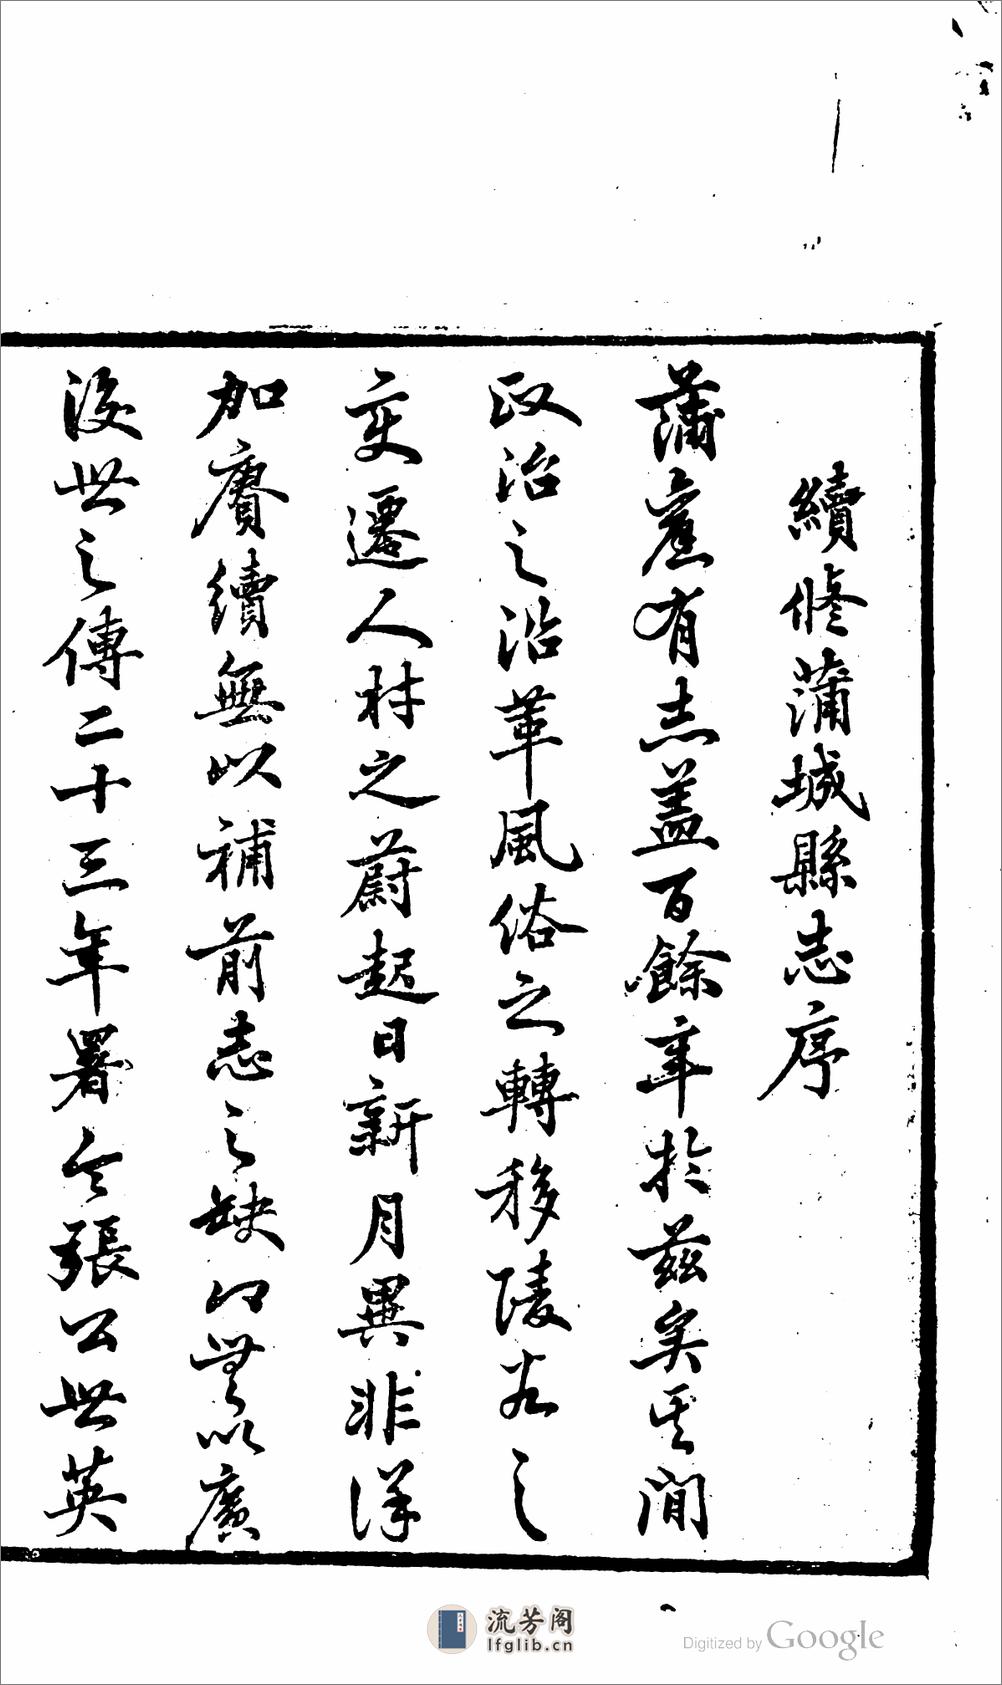 續修蒲城縣志序
蒲舊有志蓋百餘年於茲矣其間
政治之沿革風俗之轉移陵谷之
變遷人材之蔚起日新月異非詳
加賡續無以補前志之缺即無以廣
後世之傳二十三年署令張公世英
流芳阁
lfglib.cn
Digitized by Google